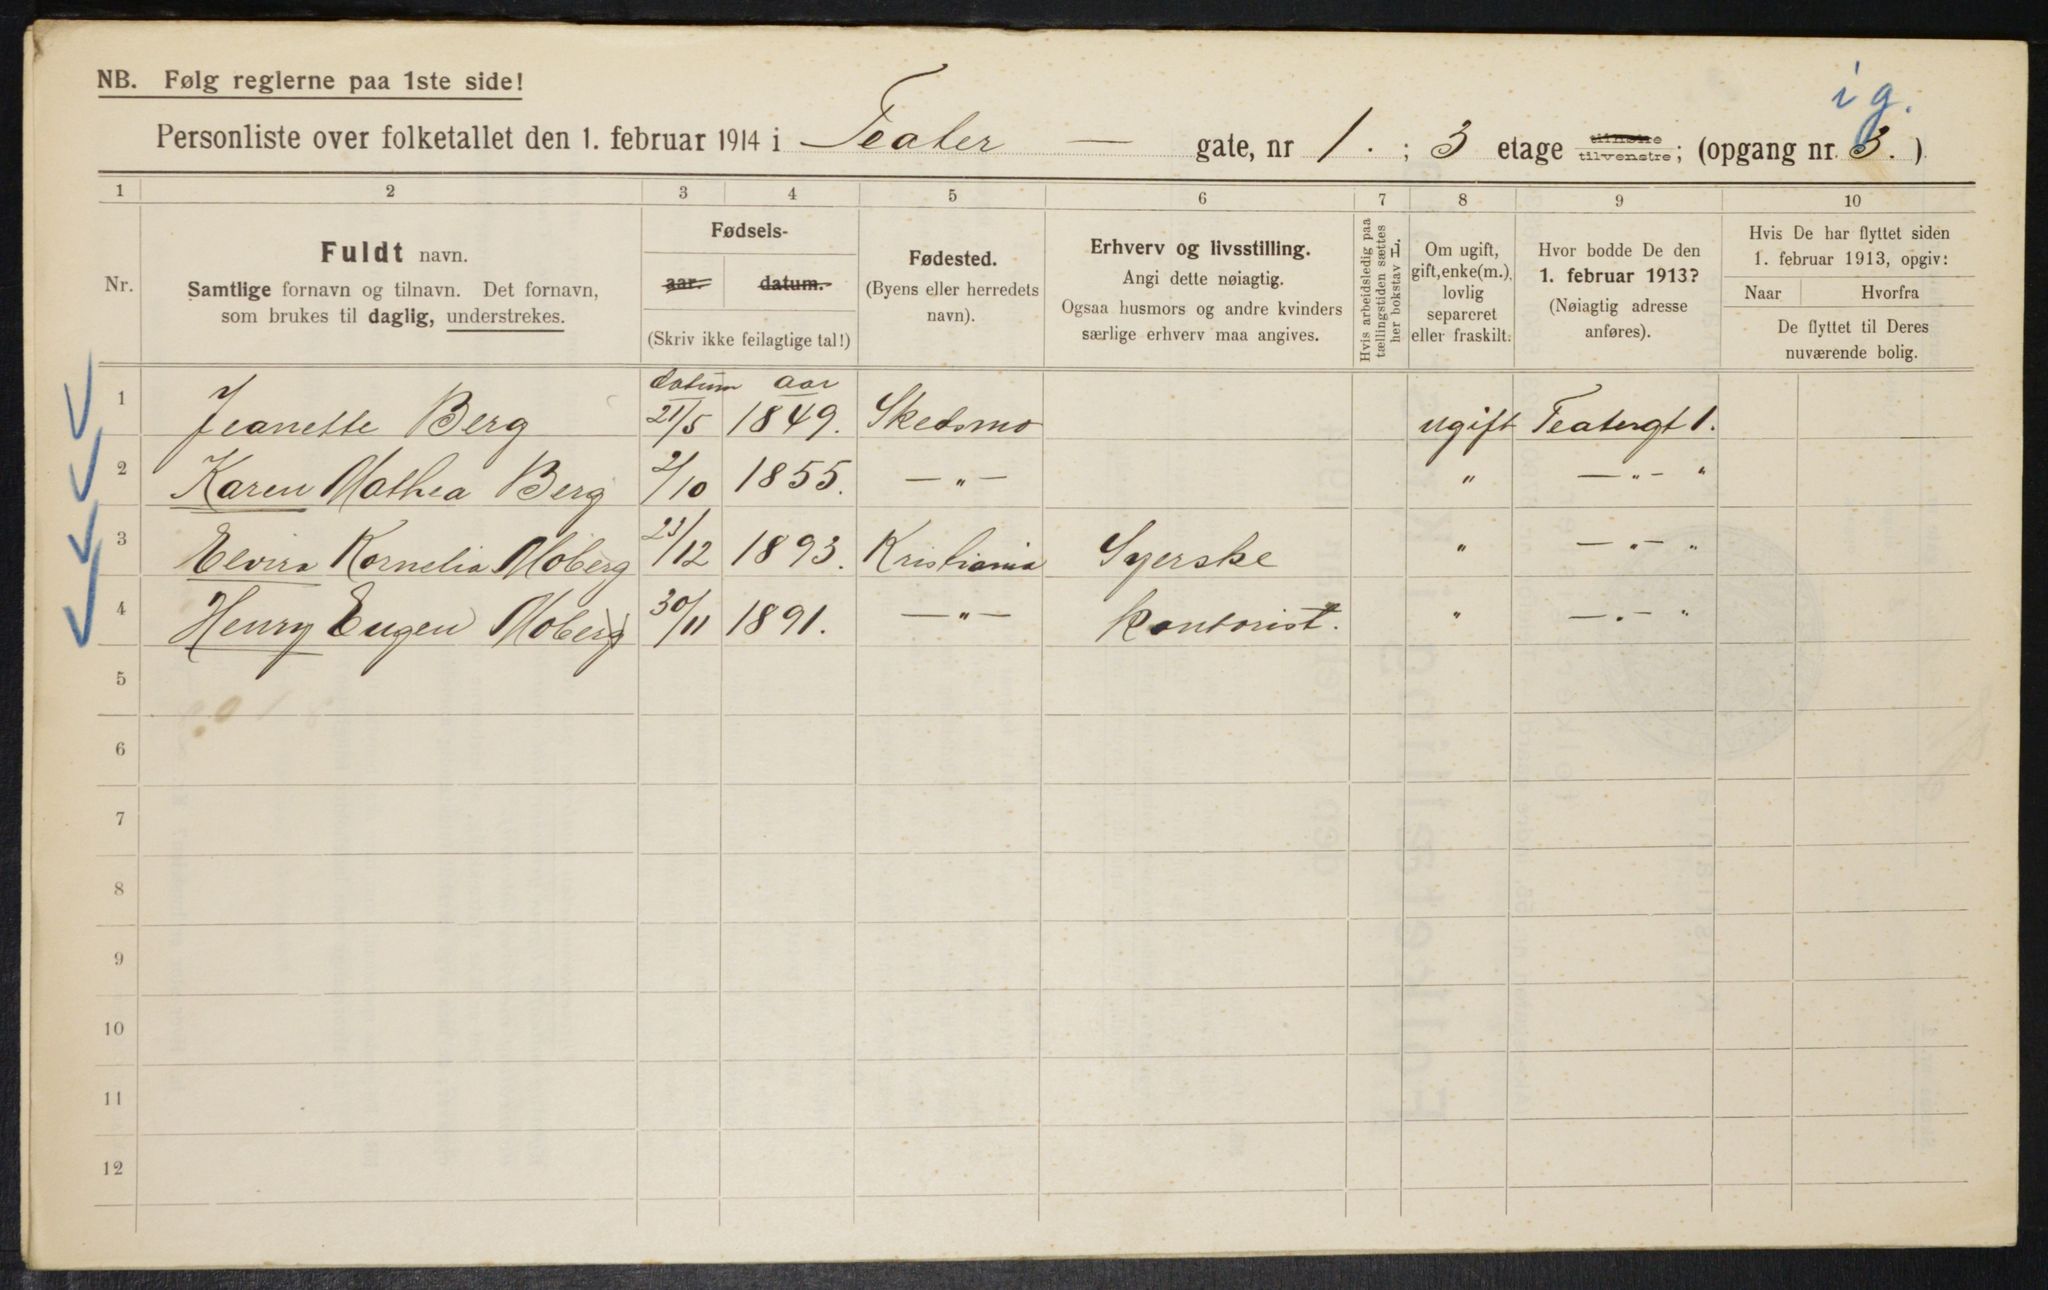 NB. Følg reglerne paa 1ste side!
i g.
Personliste over folketallet den 1. februar 1914 i Teater — gate, nr 1. ; 3 etage tilhøire tilvenstre; (opgang nr. 3. )
1 2 3 4 5 6 7 8 9 10
Nr.
Fuldt navn.
Samtlige fornavn og tilnavn. Det fornavn,
som brukes til daglig, understrekes.
Fødsels-
aar. datum.
(Skriv ikke feilagtige tal!)
Fødested.
(Byens eller herredets
navn).
Erhverv og livsstilling.
Angi dette nøiagtig.
Ogsaa husmors og andre kvinders
særlige erhverv maa angives.
Hvis arbeidsledig paa
tællingstiden sættes
her bokstav L
Om ugift,
gift, enke(m.),
lovlig
separeret
eller fraskilt.
Hvor bodde De den
1. februar 1913?
(Nøiagtig adresse
anføres).
Hvis De har flyttet siden
1. februar 1913, opgiv:
Naar Hvorfra
De flyttet til Deres
nuværende bolig.
datum aar
1 Jeanette Berg 21/5 1849. Skedsmo ugift Teatergt 1.
2 Karen Mathea Berg 2/10 1855. — " — " — " — "
3 Elvira Kornelia Moberg 23/12 1893. Kristiania Syerske " — " — "
4 Henry Eugen Moberg 30/11 1891. — " — Kontorist. " — " — "
5
6
7
8
9
10
11
12